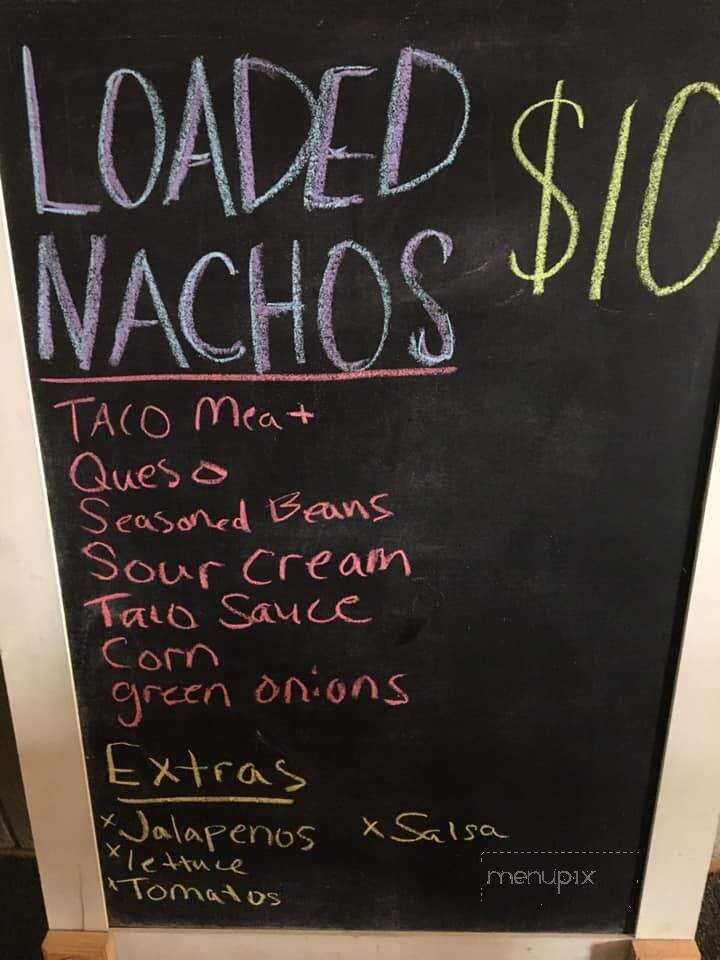 LOADED $10
NACHOS
TACO Meat
Queso
Seasoned Beans
Sour cream
Taco Sauce
Corn
green onions
Extras
x Jalapenos x Salsa
x lettuce
x Tomatos
menupix